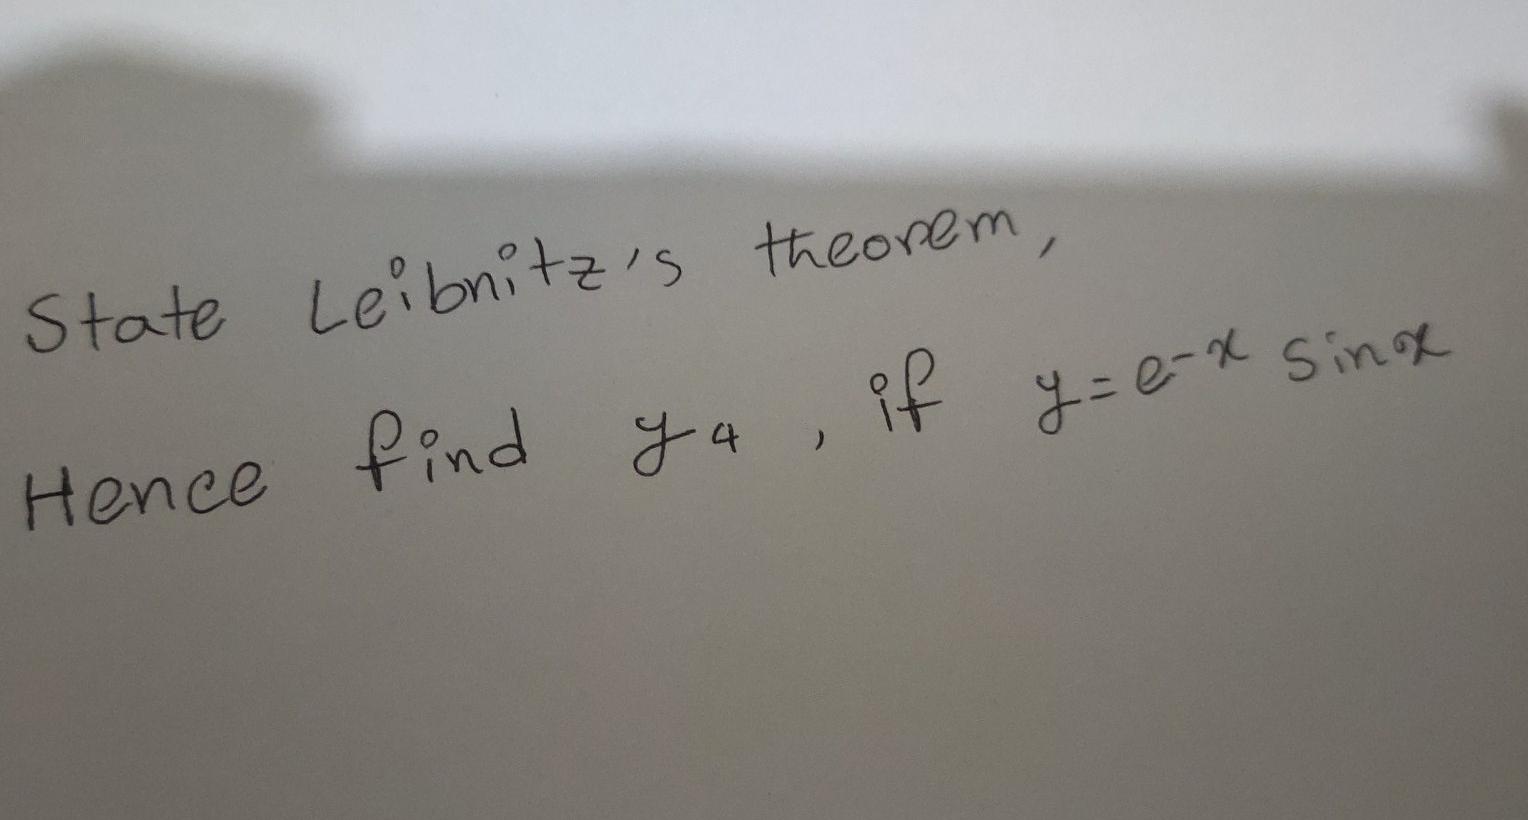 State Leibnitz's theorem,
Hence find y₄, if y=e⁻ˣ sinx